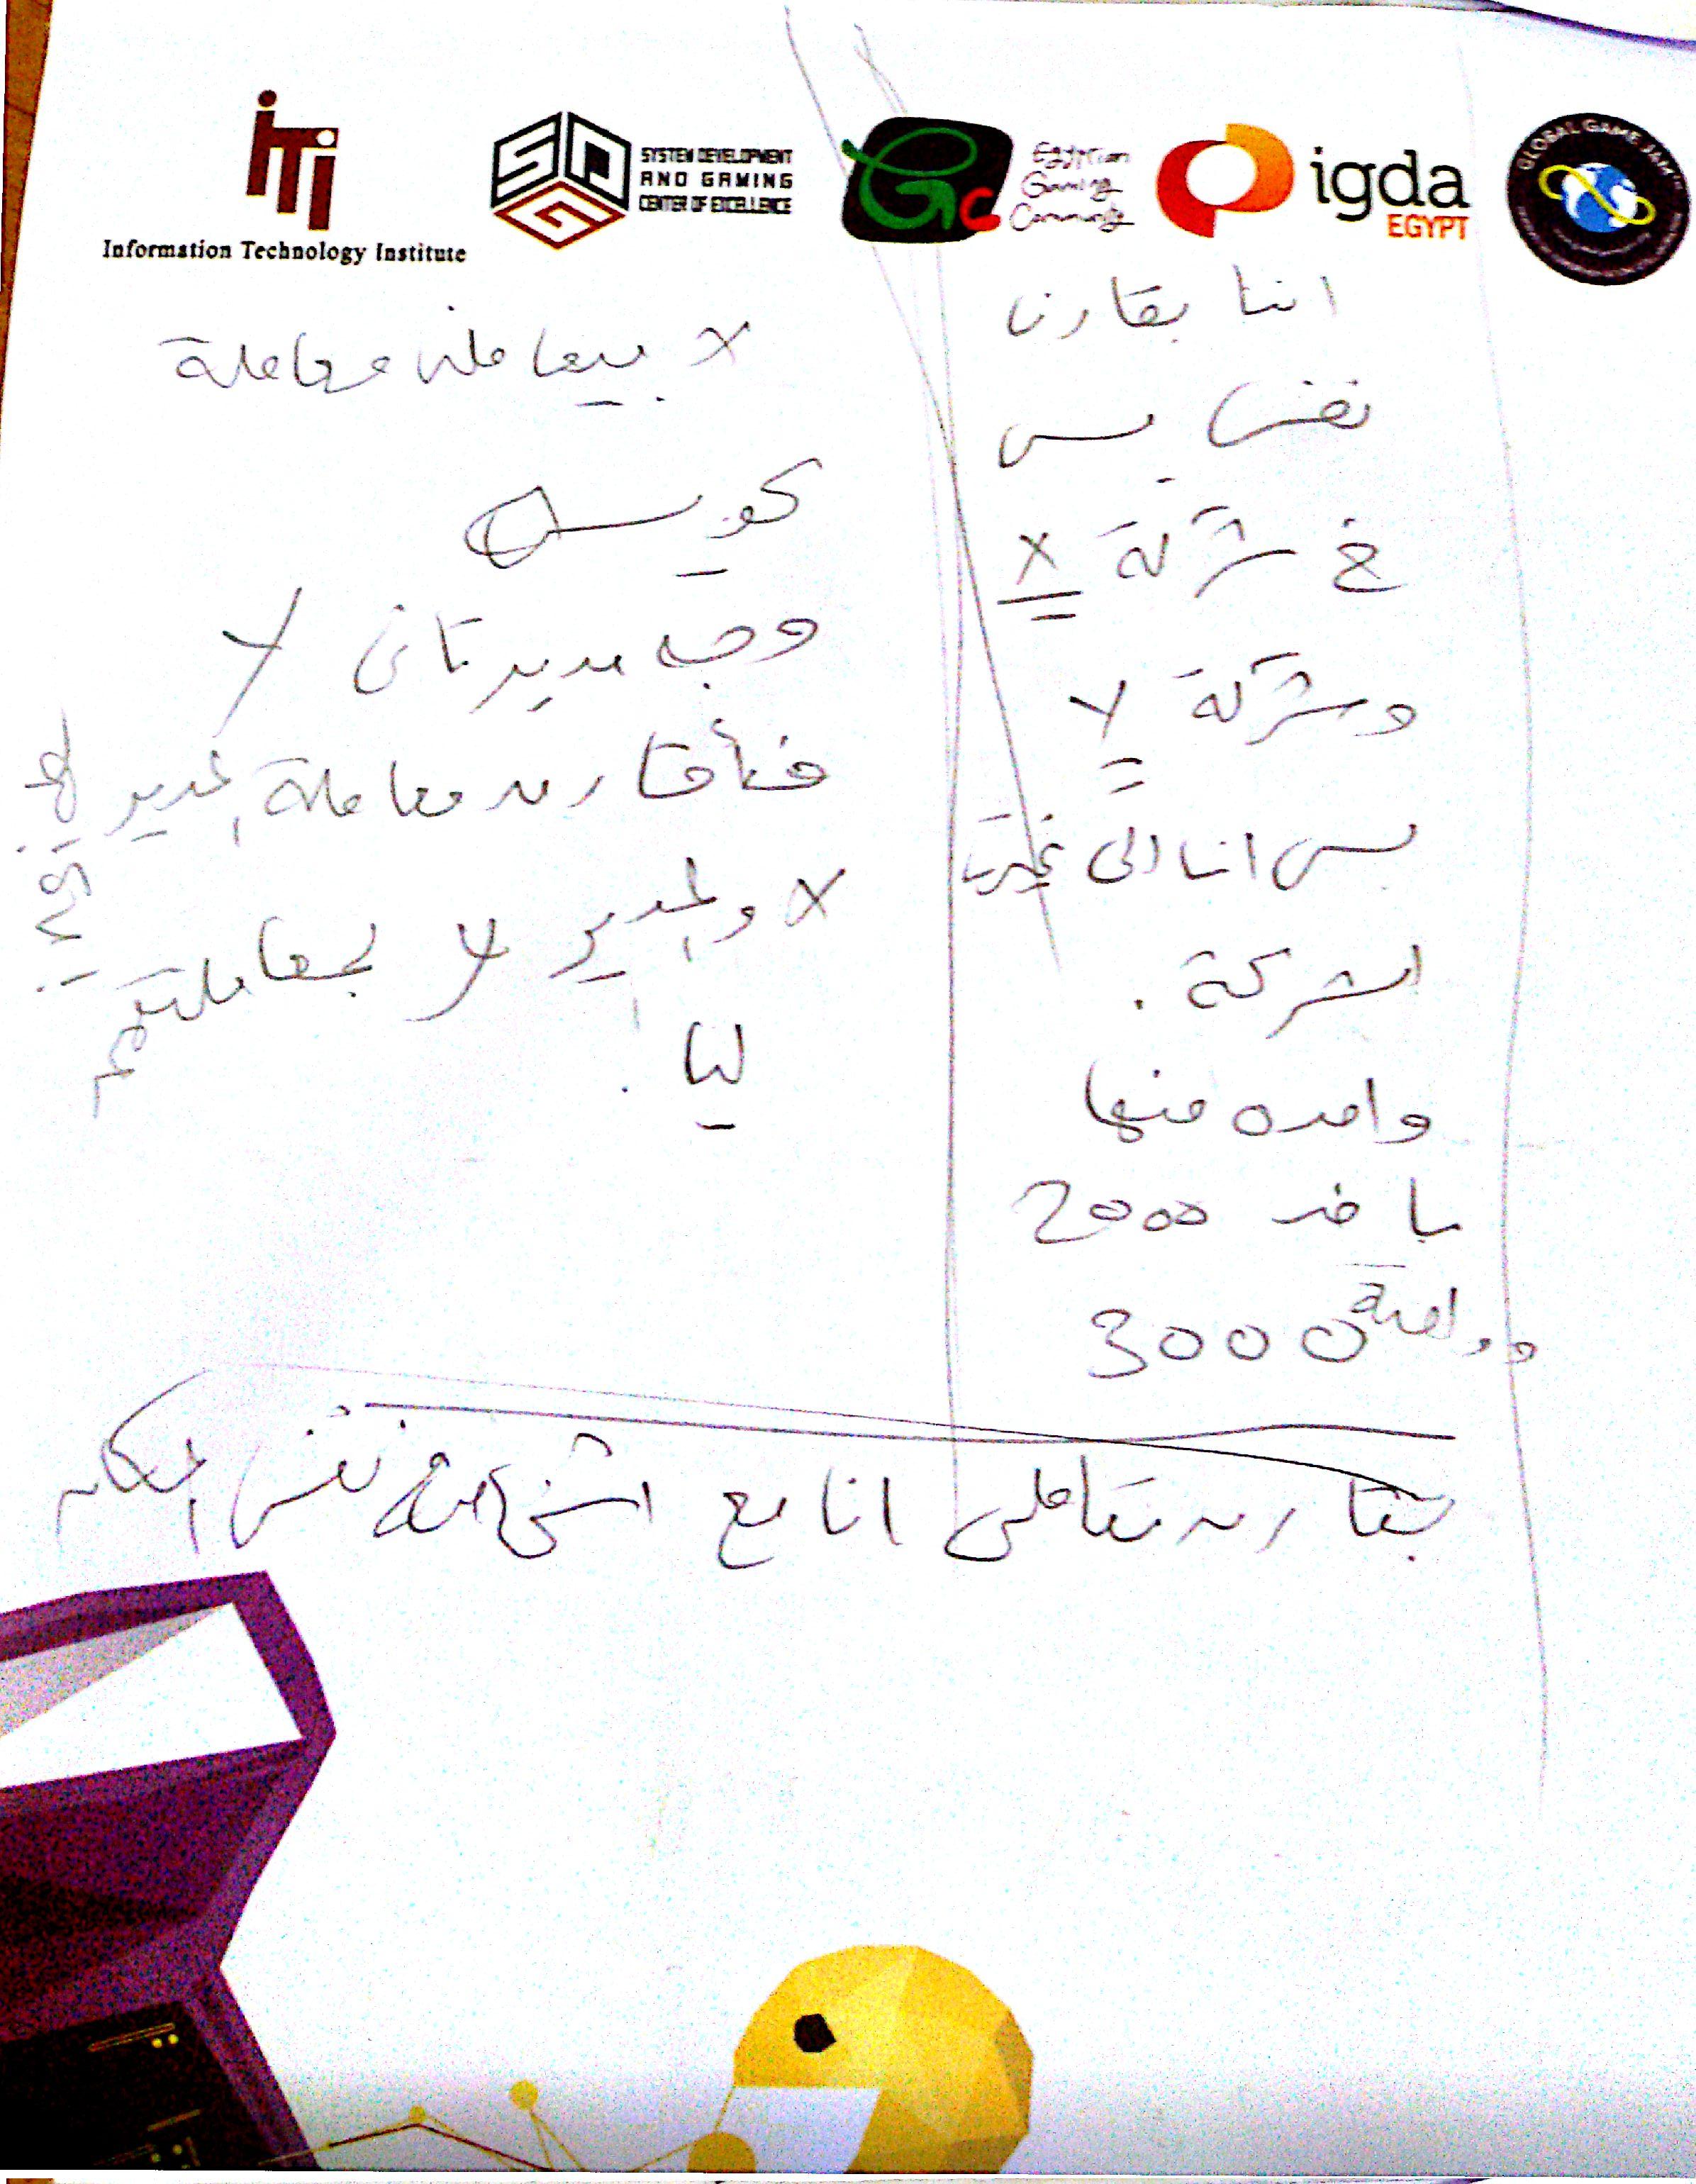 iTi
Information Technology Institute
SYSTEM DEVELOPMENT
AND GAMING
CENTER OF EXCELLENCE
Egyptian
Gaming
Community
igda
EGYPT
GLOBAL GAME JAM
انتا بقارن
نفس بس
في شركة X
وشركة Y
بس انا اللى غيرت
الشركة .
واحده منها
باخد 2000
وواحدة 3000
X بيعاملنى معاملة
كويسة
وجه مدير تانى Y
فبأقارن معاملة المدير
X والمدير Y بمعاملتهم
ليا .
بقارن تعاملى انا مع اشخاص فى نفس المكان